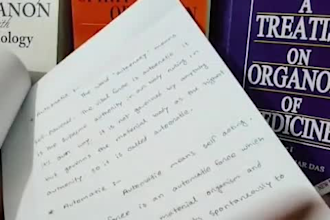 ANON
ology
A
TREATI
ON
ORGANO
OF
MEDICINE
AR DAS
* Automatic :- The word 'autonomy' means
self control. The vital force is autocratic. It
is the supreme authority in our body acting in
its own way. It is not governed by anybody
but governs the material body as the highest
authority so it is called autocratic.
* Automatic :- Automatic means self acting.
force is an automatic force which
material organism and
spontaneously to